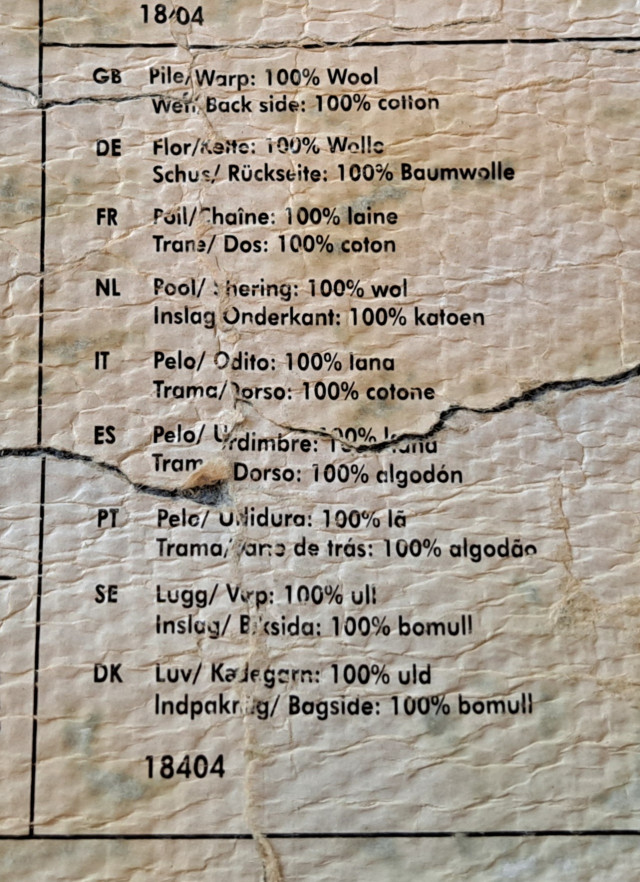 18404
GB Pile/Warp: 100% Wool
Weft/ Back side: 100% cotton
DE Flor/Kette: 100% Wolle
Schuss/ Rückseite: 100% Baumwolle
FR Poil/Chaîne: 100% laine
Trame/ Dos: 100% coton
NL Pool/ 100% wol
Inslag Onderkant: 100% katoen
IT Pelo/ Ordito: 100% lana
Trama/Dorso: 100% cotone
ES Pelo/ Urdimbre: 100% lana
Trama Dorso: 100% algodón
PT Pelo/ Urdidura: 100% lã
Trama/ de trás: 100% algodão
SE Lugg/ Varp: 100% ull
Inslag/ Baksida: 100% bomull
DK Luv/ Kædegarn: 100% uld
Indpakning/ Bagside: 100% bomull
18404